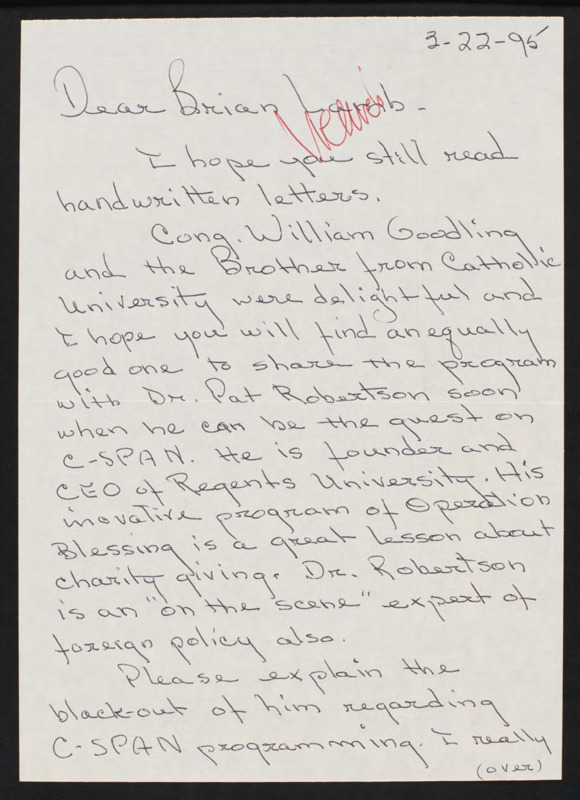 3-22-95
Dear Brian Lamb-
I hope you still read
handwritten letters.
Cong. William Goodling
and the Brother from Catholic
University were delightful and
I hope you will find an equally
good one to share the program
with Dr. Pat Robertson soon
when he can be the guest on
C-SPAN. He is founder and
CEO of Regents University. His
inovative program of Operation
Blessing is a great lesson about
charity giving. Dr. Robertson
is an "on the scene" expert of
foreign policy also.
Please explain the
black-out of him regarding
C-SPAN programming. I really
(over)